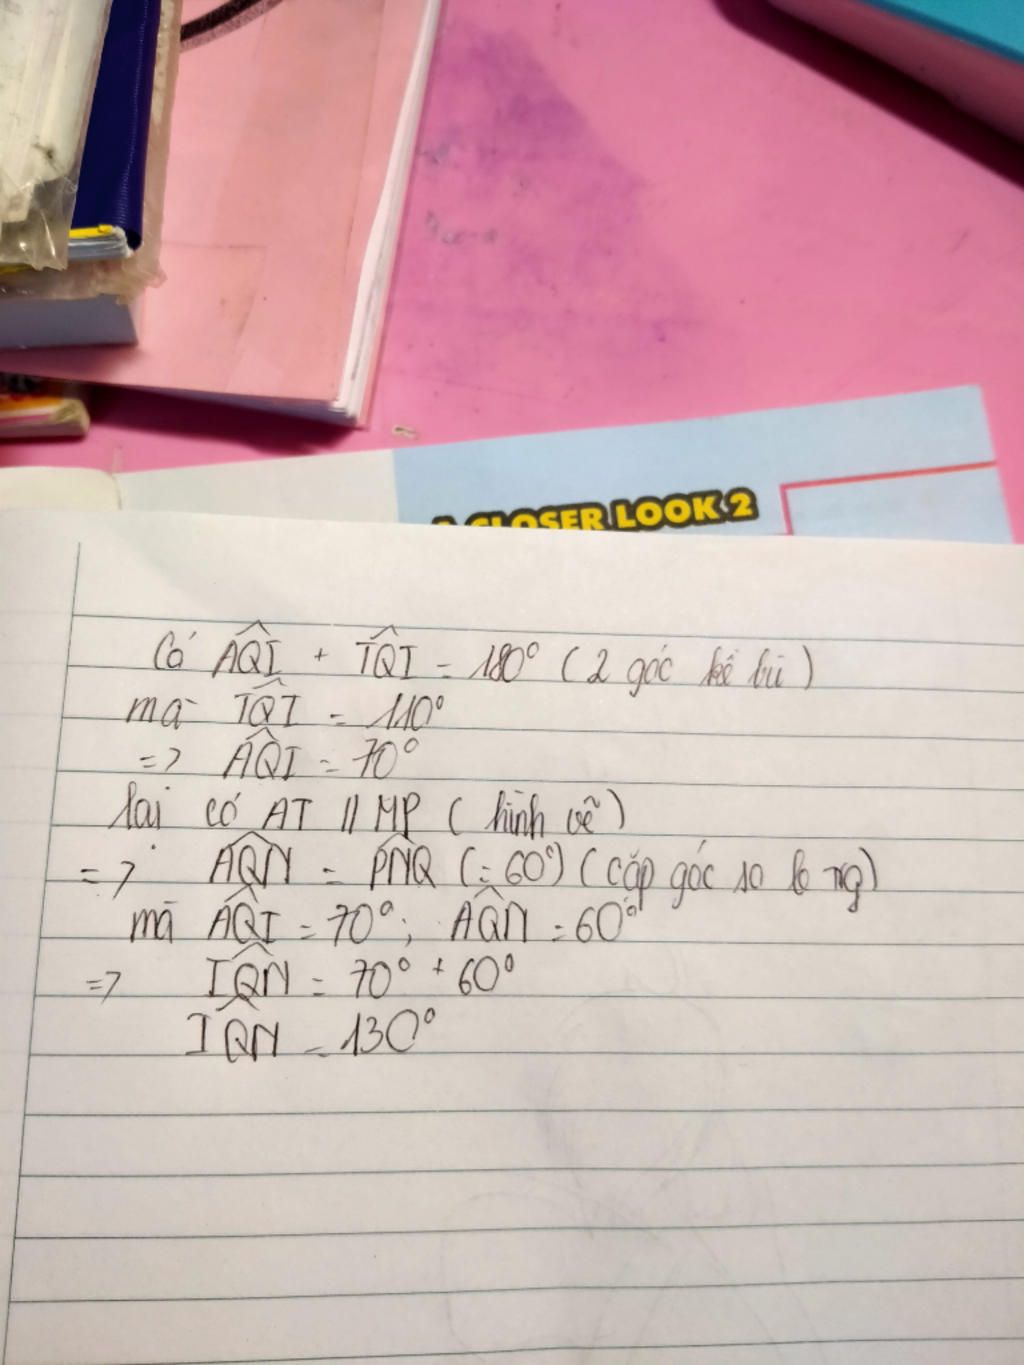 A CLOSER LOOK 2
Có AQI + TQI = 180° (2 góc kề bù)
mà TQI = 110°
=> AQI = 70°
lại có AT // MP (hình vẽ)
=> AQN = PNQ (=60°) (cặp góc so le ng)
mà AQI = 70°; AQN = 60°
=> IQN = 70° + 60°
IQN = 130°